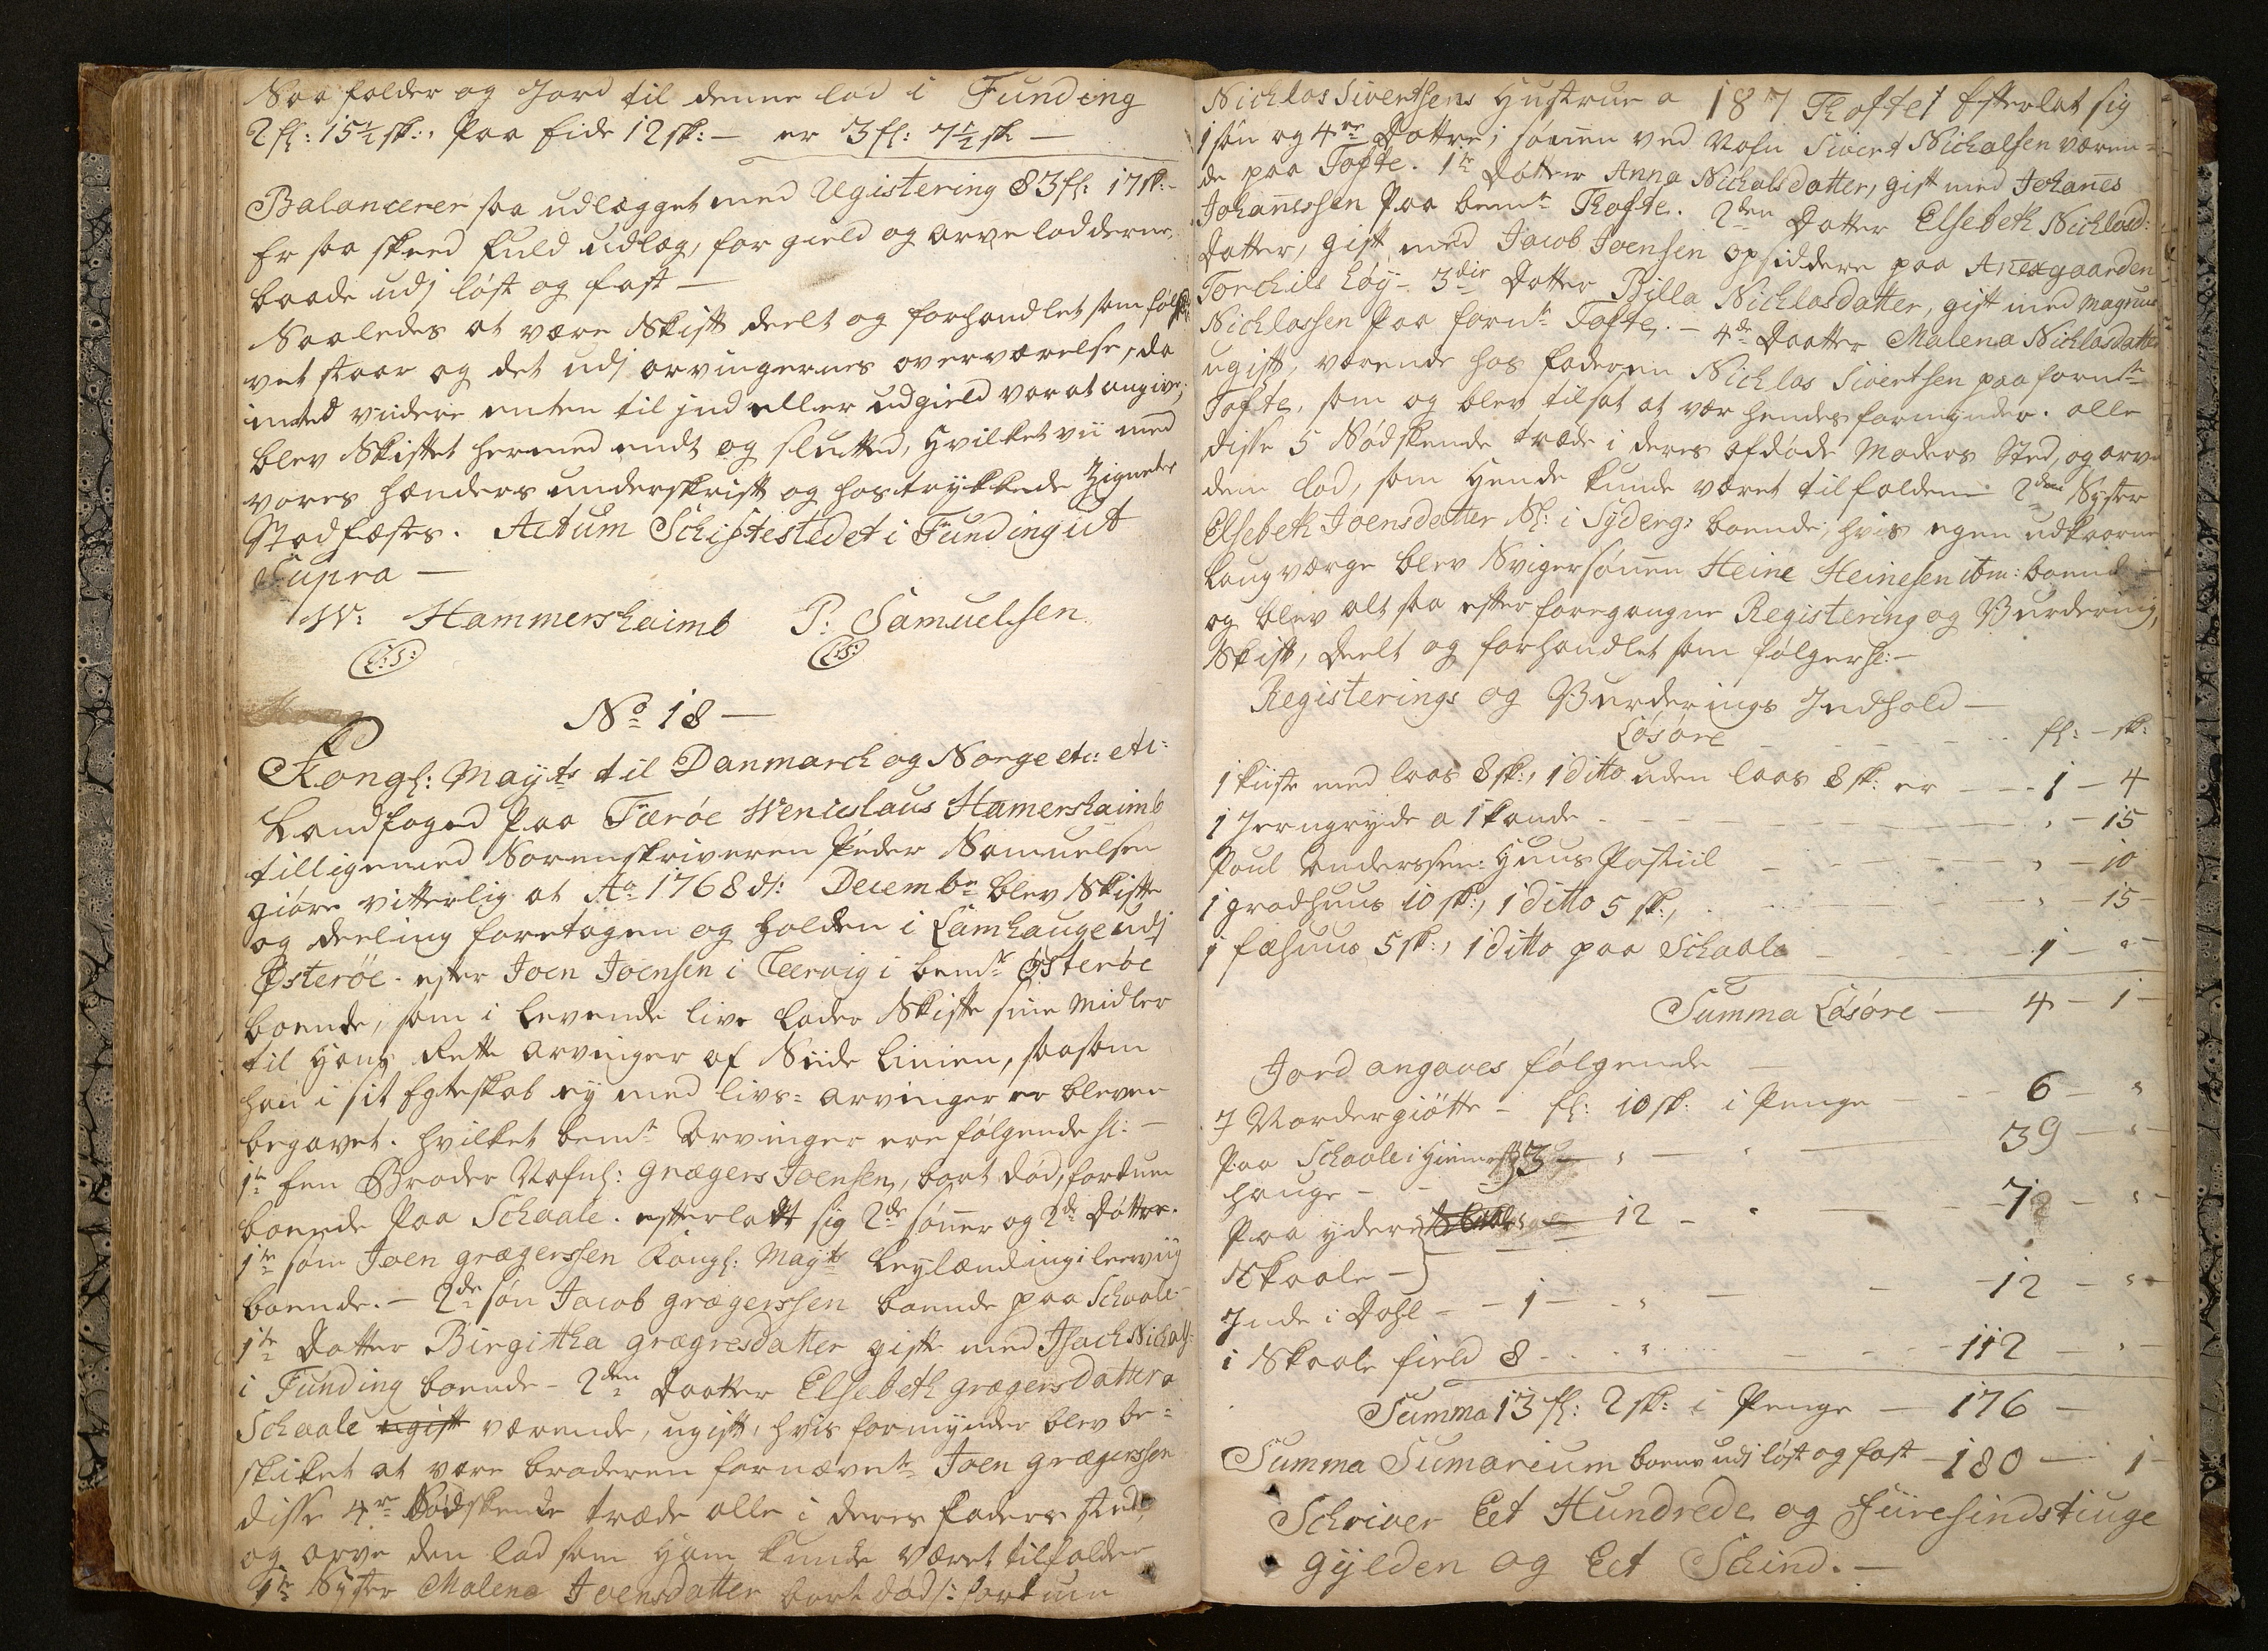 Saa falder og Jord til denne lod i Funding
2 fl: 15½ sk:, Paa Eide 12 sk: — er 3 fl: 7½ sk —
Balancerer saa udlægget med Ugistering 83 fl: 17 sk: –
Er saa skeed fuld udlæg, for gield og arve lodderne,
baade udj løst og fast —
Saaledes at være Skift deelt og forhandlet som følge
vet staar og det udj arvingernes overværelse, da
intet viidere enten til ind eller udgield var at angive,
blev Skiftet hermed endt og slutted, Hvilket vii med
vores hænders underskrift og hostrykkede Zigneter
Stadfæstes. Actum Schiftestedet i Funding ut
Supra —
W: Hammershaimb P: Samuelsen.
L:S: L:S:
No 18 —
Kongl: Mayts til Danmarch og Norge etc: etc:
Landfoged Paa Færöe Wenceslaus Hamershaimb
tilligemed Sorenskriveren Peder Samuelsen
giøre vitterlig at Ao 1768 d: Decembr blev Skifte
og deeling foretagen og holden i Lamhauge udj
Østeröe efter Joen Joensen i Leervig i bemte Østeröe
boende, som i Levende live lader Skifte sine midler
til Hans Rette arvinger af Siide Linien, saasom
han i sit Egteskab ej med livs= arvinger er bleven
begavet. hvilket bemte Arvinger ere følgende sl: —
1te Een Broder Nafnl: Grægers Joensen, bort død, fordum
boende Paa Schaale. efterladt sig 2de sønner og 2de Døttre.
1te søn Joen Grægerssen Kongl: Mayts Leylænding i Leerviig
boende. — 2de søn Jacob grægerssen boende paa Schaale –
1te Datter Birgitha grægresdatter gifte med Isach Nichals:
i Funding boende – 2den Daatter Elsebeth grægersdatter a
Schaale ugift værende, ugift, hvis formynder blev be=
skiket at være broderen fornævnte Joen Grægerssen
disse 4re Sødskende træde alle i deres faders sted,
og arve den lod som Ham kunde været tilfalden
1te Syster Malena Joensdatter bort død: fordum
Nichlas Sivertsens Hustrue a 187 Thofte / Efterlat sig
1 søn og 4re Døttre; sønnen ved Nafn Sivert Nichalsen væren=
de paa Tofte. 1te Datter Anna Nichalsdatter, gift med Johanes
Johanessen Paa bemte Thofte. 2den Datter Elsebeth Nichlasd:
Datter, gift med Jacob Joensen opsiddere paa Anexgaarden
Torchils høy – 3die Datter Billa Nichlasdatter, gift med Magnus
Nichlassen Paa fornte Tofte. – 4de Daatter Malena Nichlasdatter
ugift, værende hos faderen Nichlas Sivertsen paa fornte
Tofte, som og blev tilsat at vær hendes formynder. alle
disse 5 Sødskende træde i deres afdøde Moders Sted, og arve
dem lod, som Hende kunde været tilfalden 2den Syster
Elsebeth Joensdatter i Syderg: boende, hvis egen udkaarne
Laugværge blev Svigersønnen Heine Heinesen ibm: boend –
og blev alt saa efter foregangne Registering og Vurdering,
Skift, deelt og forhandlet som følger sl: —
Registerings og Vurderings Indhold —
Løsøre fl: – sk:
1 kiiste med laas 8 sk:, 1 ditto uden laas 8 sk: er – – 1 – 4
1 Jerngryde a 1 kande – – „ – 15
Poul Anderssens Huus Postiil – „ – 10
1 gradhuus 10 sk:, 1 ditto 5 sk:, – „ – 15 –
1 fæhuus 5 sk:, 1 ditto paa Schaale – 1 – „ –
Summa Løsøre — 4 – 1 –
Jord angaves følgende —
J Nordergiötte – fl: 10 sk: i Penge — 6 – „
Paa Schaale i Himmest 3 — „ — 39 – „
hauge – –
Paa ydere 12 – „ — 7 – „
Skaale –
Inde i Dahl – – 1 – „ — 12 – „
i Skaale field 8 – „ — 112 – „
Summa 13 fl: 2 sk: i Penge — 176 –
Summa Sumarium boens udj løst og fast – 180 – 1
Schriver Eet Hundrede og Fiiresindstiuge
gylden og Eet Schind. —